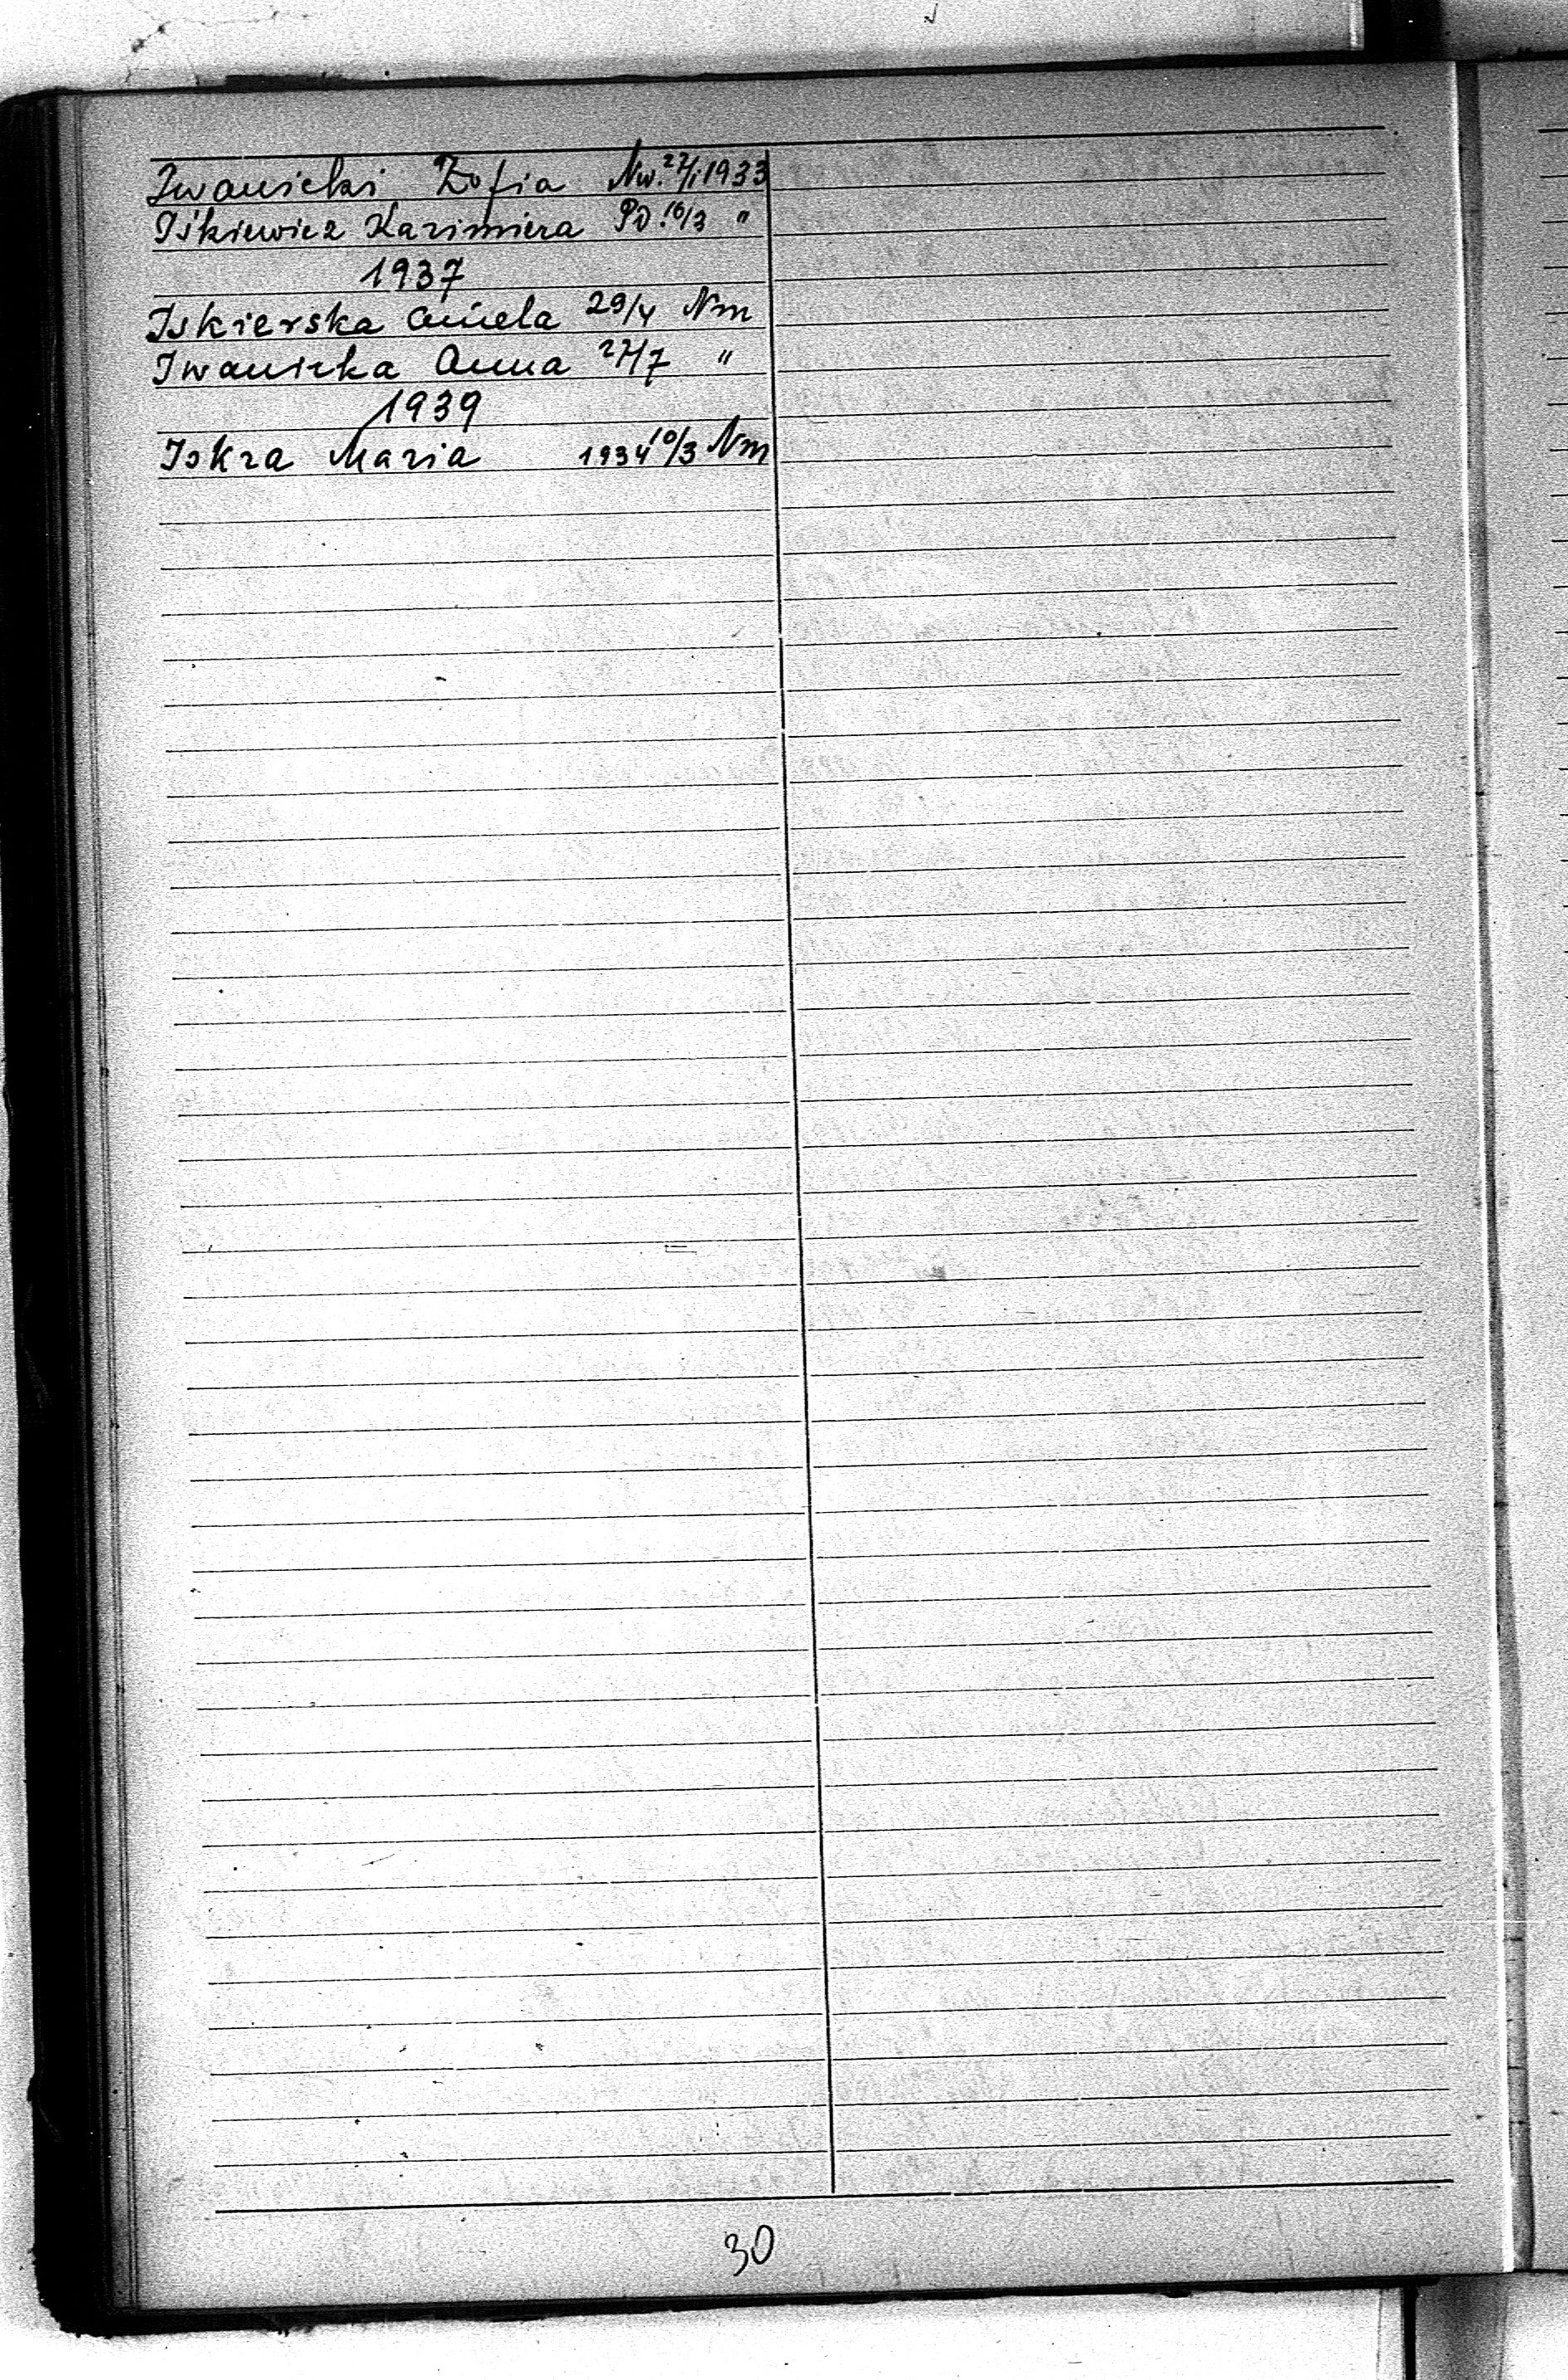 Iwanicki Zofia Nw. 27/1 1933
Iśkiewicz Kazimiera PD. 16/3 "
1937
Iskierska Aniela 29/4 Nm
Iwanicka Anna 27/7 "
1939
Iskra Maria 1934 10/3 Nm
30